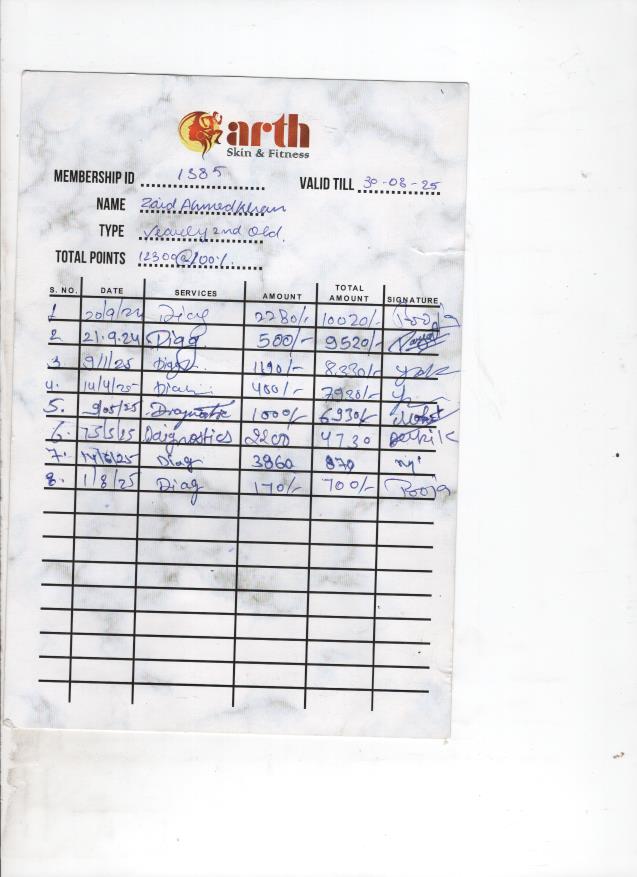 arth
Skin & Fitness
MEMBERSHIP ID 1385
VALID TILL 30-08-25
NAME Zaid Ahmed Khan
TYPE Yearly 2nd Old.
TOTAL POINTS 12300@100%.
S. NO. DATE SERVICES AMOUNT TOTAL AMOUNT SIGNATURE
1 20/9/24 Diag 2280/- 10020/- Pooja
2. 21.9.24 Diag 500/- 9520/-
3 9/1/25 Diag. 1190/- 8330/-
4. 14/4/25 400/- 7930/-
5. 9/05/25 Diagnostic 1000/- 6930/- Mohit
6. Daignostics 2200 4730
7. Diag 3860 870
8. 1/8/25 Diag 170/- 700/- Pooja